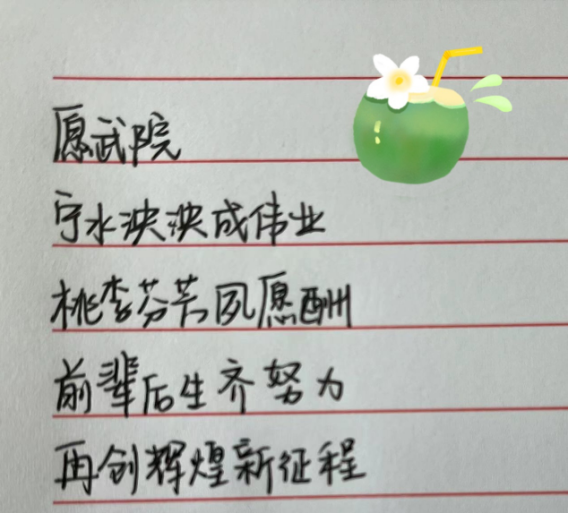 愿武院
宁水泱泱成伟业
桃李芬芳夙愿酬
前辈后生齐努力
再创辉煌新征程